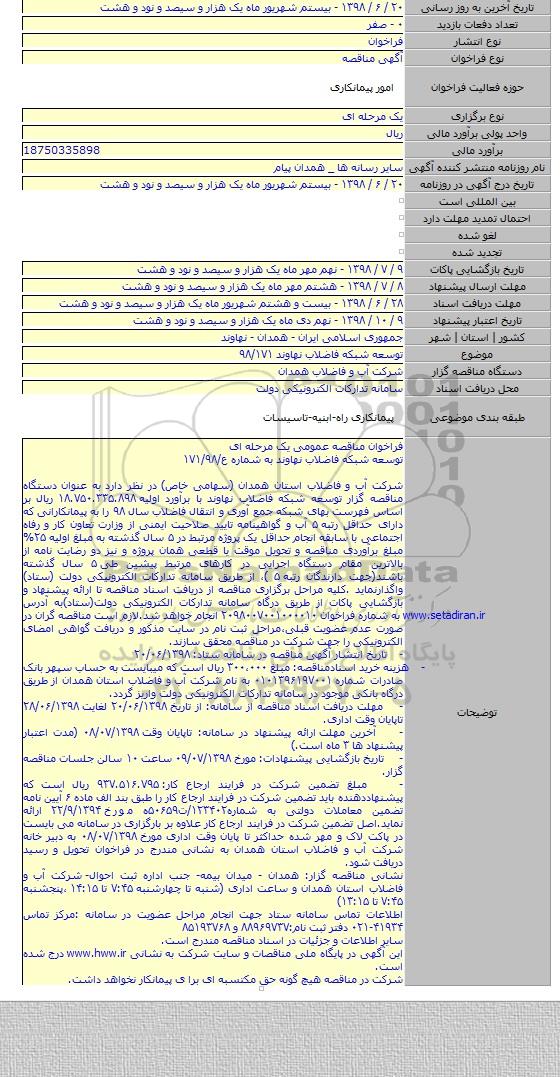 تاریخ آخرین به روز رسانی ۲۰ / ۶ / ۱۳۹۸ - بیستم شهریور ماه یک هزار و سیصد و نود و هشت
تعداد دفعات بازدید ۰ - صفر
نوع انتشار فراخوان
نوع فراخوان آگهی مناقصه
حوزه فعالیت فراخوان امور پیمانکاری
نوع برگزاری یک مرحله ای
واحد پولی برآورد مالی ریال
برآورد مالی 18750335898
نام روزنامه منتشر کننده آگهی سایر رسانه ها _ همدان پیام
تاریخ درج آگهی در روزنامه ۲۰ / ۶ / ۱۳۹۸ - بیستم شهریور ماه یک هزار و سیصد و نود و هشت
بین المللی است
احتمال تمدید مهلت دارد
لغو شده
تجدید شده
تاریخ بازگشایی پاکات ۹ / ۷ / ۱۳۹۸ - نهم مهر ماه یک هزار و سیصد و نود و هشت
مهلت ارسال پیشنهاد ۸ / ۷ / ۱۳۹۸ - هشتم مهر ماه یک هزار و سیصد و نود و هشت
مهلت دریافت اسناد ۲۸ / ۶ / ۱۳۹۸ - بیست و هشتم شهریور ماه یک هزار و سیصد و نود و هشت
تاریخ اعتبار پیشنهاد ۹ / ۱۰ / ۱۳۹۸ - نهم دی ماه یک هزار و سیصد و نود و هشت
کشور | استان | شهر جمهوری اسلامی ایران - همدان - نهاوند
موضوع توسعه شبکه فاضلاب نهاوند ۹۸/۱۷۱
دستگاه مناقصه گزار شرکت آب و فاضلاب همدان
محل دریافت اسناد سامانه تدارکات الکترونیکی دولت
طبقه بندی موضوعی پیمانکاری راه-ابنیه-تاسیسات
توضیحات
فراخوان مناقصه عمومی یک مرحله ای
توسعه شبکه فاضلاب نهاوند به شماره ع/۱۷۱/۹۸
شرکت آب و فاضلاب استان همدان (سهامی خاص) در نظر دارد به عنوان دستگاه
مناقصه گزار توسعه شبکه فاضلاب نهاوند با برآورد اولیه ۱۸.۷۵۰.۳۳۵.۸۹۸ ریال بر
اساس فهرست بهای شبکه جمع آوری و انتقال فاضلاب سال ۹۸ را به پیمانکارانی که
دارای حداقل رتبه ۵ آب و گواهینامه تایید صلاحیت ایمنی از وزارت تعاون کار و رفاه
اجتماعی با سابقه انجام حداقل یک پروژه مرتبط در ۵ سال گذشته به مبلغ اولیه ۲۵%
مبلغ برآوردی مناقصه و تحویل موقت یا قطعی همان پروژه و نیز دو رضایت نامه از
بالاترین مقام دستگاه اجرایی در کارهای مرتبط پیشین طی ۵ سال گذشته
باشند(جهت دارندگان رتبه ۵ ). از طریق سامانه تدارکات الکترونیکی دولت (ستاد)
واگذارنماید .کلیه مراحل برگزاری مناقصه از دریافت اسناد مناقصه تا ارائه پیشنهاد و
بازگشایی پاکات از طریق درگاه سامانه تدارکات الکترونیکی دولت(ستاد)به آدرس
www.setadiran.ir به شماره فراخوان ۲۰۹۸۰۰۷۰۰۱۰۰۰۰۱۰ انجام خواهد شد.لازم است مناقصه گران در
صورت عدم عضویت قبلی،مراحل ثبت نام در سایت مذکور و دریافت گواهی امضای
الکترونیکی را جهت شرکت در مناقصه محقق سازند.
- تاریخ انتشار آگهی مناقصه در سامانه ستاد: ۲۰/۰۶/۱۳۹۸
- هزینه خرید اسنادمناقصه: مبلغ ۳۰۰.۰۰۰ ریال است که میبایست به حساب سپهر بانک
صادرات شماره ۰۱۰۱۳۹۶۱۹۷۰۰۱ به نام شرکت آب و فاضلاب استان همدان از طریق
درگاه بانکی موجود در سامانه تدارکات الکترونیکی دولت واریز گردد.
- مهلت دریافت اسناد مناقصه از سامانه: از تاریخ ۲۰/۰۶/۱۳۹۸ لغایت ۲۸/۰۶/۱۳۹۸
تاپایان وقت اداری.
- آخرین مهلت ارائه پیشنهاد در سامانه: تاپایان وقت ۰۸/۰۷/۱۳۹۸ (مدت اعتبار
پیشنهاد ها ۳ ماه است.)
- تاریخ بازگشایی پیشنهادات: مورخ ۰۹/۰۷/۱۳۹۸ ساعت ۱۰ سالن جلسات مناقصه
گزار.
- مبلغ تضمین شرکت در فرایند ارجاع کار: ۹۳۷.۵۱۶.۷۹۵ ریال است که
پیشنهاددهنده باید تضمین شرکت در فرایند ارجاع کار را طبق بند الف ماده ۶ آیین نامه
تضمین معاملات دولتی به شماره۱۲۳۴۰۲/ت۵۰۶۵۹ه مورخ ۲۲/۹/۱۳۹۴ ارائه
نماید.اصل تضمین شرکت در فرایند ارجاع کار علاوه بر بارگزاری در سامانه می بایست
در پاکت لاک و مهر شده حداکثر تا پایان وقت اداری مورخ ۰۸/۰۷/۱۳۹۸ به دبیر خانه
شرکت آب و فاضلاب استان همدان به نشانی مندرج در فراخوان تحویل و رسید
دریافت شود.
نشانی مناقصه گزار: همدان - میدان بیمه- جنب اداره ثبت احوال- شرکت آب و
فاضلاب استان همدان و ساعت اداری (شنبه تا چهارشنبه ۷:۴۵ تا ۱۴:۱۵ ،پنجشنبه
۷:۴۵ تا ۱۳:۱۵)
اطلاعات تماس سامانه ستاد جهت انجام مراحل عضویت در سامانه :مرکز تماس
۴۱۹۳۴-۰۲۱ دفتر ثبت نام:۸۸۹۶۹۷۳۷ و ۸۵۱۹۳۷۶۸
سایر اطلاعات و جزئیات در اسناد مناقصه مندرج است.
این آگهی در پایگاه ملی مناقصات و سایت شرکت به نشانی www.hww.ir درج شده
است.
شرکت در مناقصه هیچ گونه حق مکتسبه ای برا ی پیمانکار نخواهد داشت.